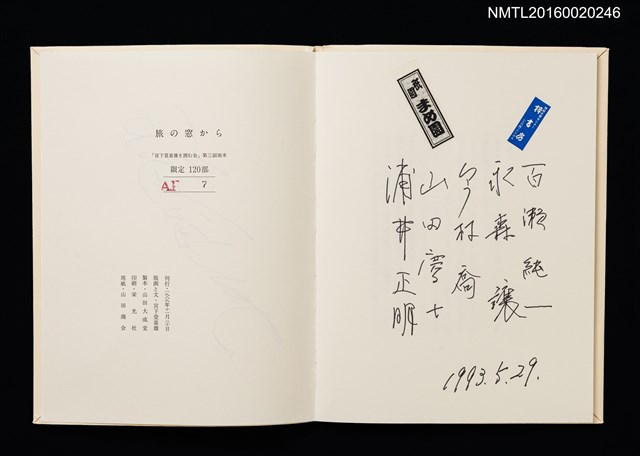 NMTL20160020246
旅の窓から
「宮下登喜雄を囲む会」第三回頒本
限定 120部
AF 7
版画と文・宮下登喜雄
製本・山田大成堂
印刷・栄光社
用紙・山田商会
百瀬純一
永森譲
今村喬
山田彦士
浦井正明
1993.5.29.